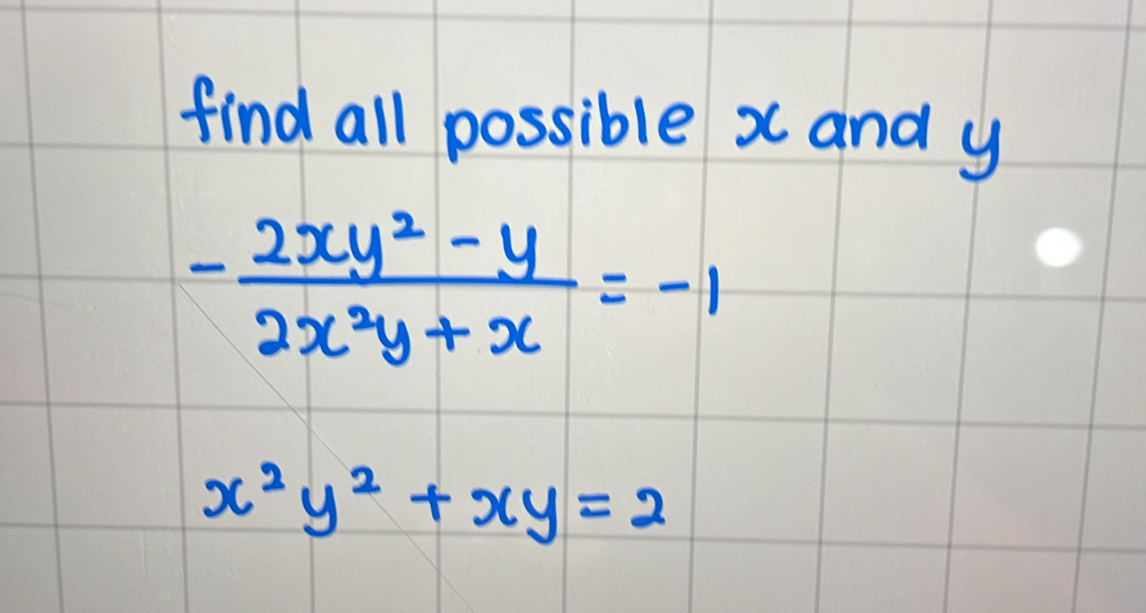 find all possible x and y
- (2xy² - y)/(2x²y + x) = -1
x²y² + xy = 2